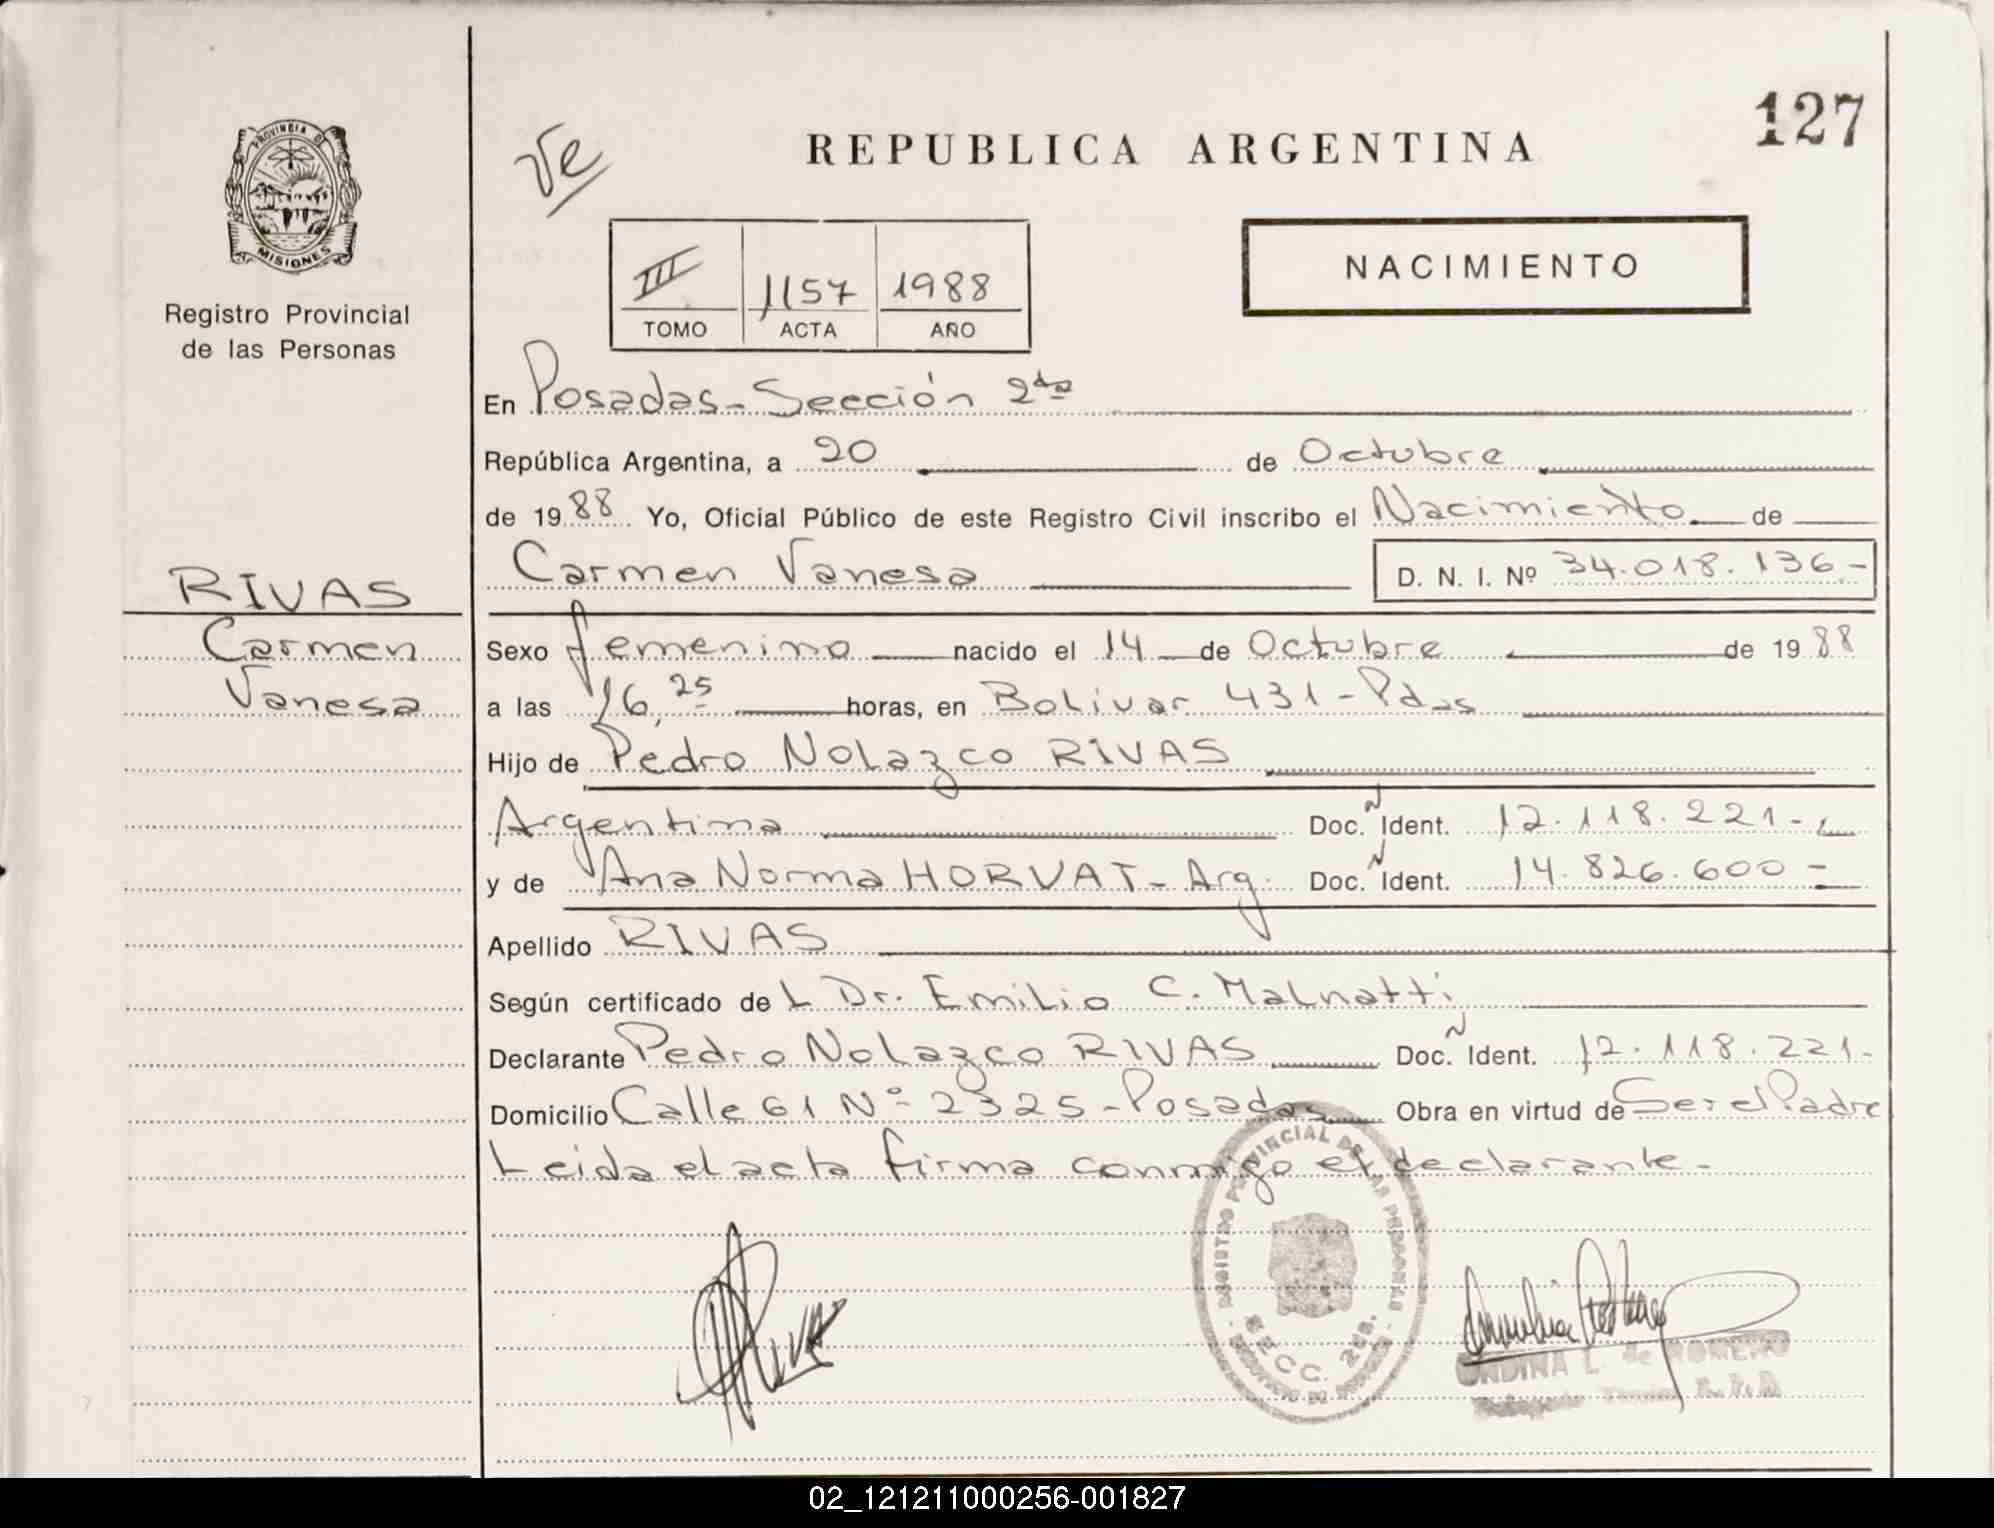 127
Ve
REPUBLICA ARGENTINA
PROVINCIA DE
MISIONES
Registro Provincial
de las Personas
NACIMIENTO
III 1157 1988
TOMO ACTA AÑO
En Posadas - Sección 2da
República Argentina, a 20 de Octubre
de 1988 Yo, Oficial Público de este Registro Civil inscribo el Nacimiento de
Carmen Vanesa D. N. I. Nº 34.018.136-
RIVAS
Carmen
Vanesa
Sexo femenino nacido el 14 de Octubre de 1988
a las 16,25 horas, en Bolivar 431 - Pdas
Hijo de Pedro Nolazco RIVAS
Argentina Doc. Ñ Ident. 12.118.221-
y de Ana Norma HORVAT - Arg. Doc. Ñ Ident. 14.826.600-
Apellido RIVAS
Según certificado de L Dr. Emilio C. Malnatti
Declarante Pedro Nolazco RIVAS Doc. Ñ Ident. 12.118.221-
Domicilio Calle 61 Nº 2325 - Posadas Obra en virtud de Ser el Padre
Leida el acta firma conmigo el declarante.-
REGISTRO PROVINCIAL DE LAS PERSONAS
SECC. 2da.
Rivas
ONDINA L. de ROMERO
02_121211000256-001827